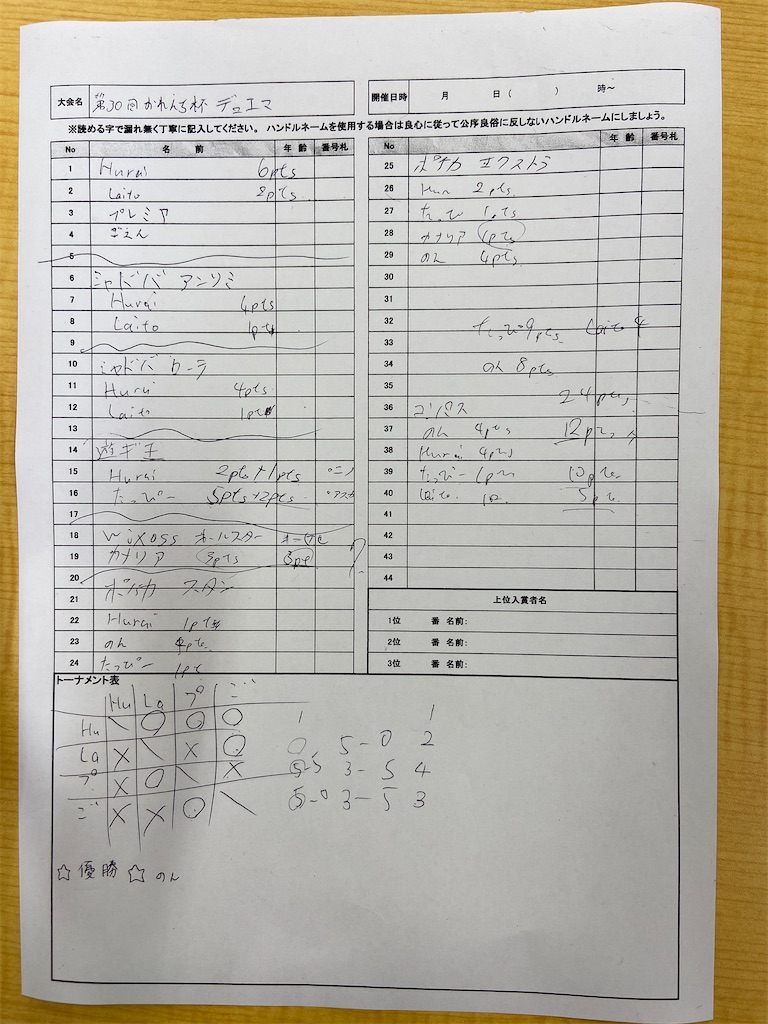 大会名 第30回かれんちゃ杯 デュエマ
開催日時 月 日( ) 時～
※読める字で漏れ無く丁寧に記入してください。 ハンドルネームを使用する場合は良心に従って公序良俗に反しないハンドルネームにしましょう。
No 名 前 年 齢 番号札
1 Hurai 6pts
2 Laito 2pts
3 プレミア
4 ごえん
5
6 シャドバ アンリミ
7 Hurai 4pts
8 Laito 1pt
9
10 シャドバ ローテ
11 Hurai 4pts
12 Laito 1pt
13
14 遊ギ王
15 Hurai 2pts+1pts
16 たっぴー 5pts+2pts
17
18 WIXOSS オールスター
19 カナリア 3pts 3pt
20
21 ポケカ スタン
22 Hurai 1pt
23 のん 4pts
24 たっぴー 1pt
年 齢 番号札
25 ポケカ エクストラ
26 Hur 2pts
27 たっぴ 1pts
28 カナリア 1pts
29 のん 4pts
30
31
32 たっぴー9pts Laito 4
33
34 のん 8pts
35 24pts
36 コンパス
37 のん 4pts 12pts
38 Hurai 4pts
39 たっぴー 1pts 10pts
40 Laito 1p 5pt
41
42
43
44
上位入賞者名
1位 番 名前:
2位 番 名前:
3位 番 名前:
トーナメント表
Hu La プ ご
Hu \ ○ ○ ○ 1 1
La × \ × ○ 0 5-0 2
プ × ○ \ × 3-5 4
ご × × ○ \ 3-5 3
☆優勝☆ のん